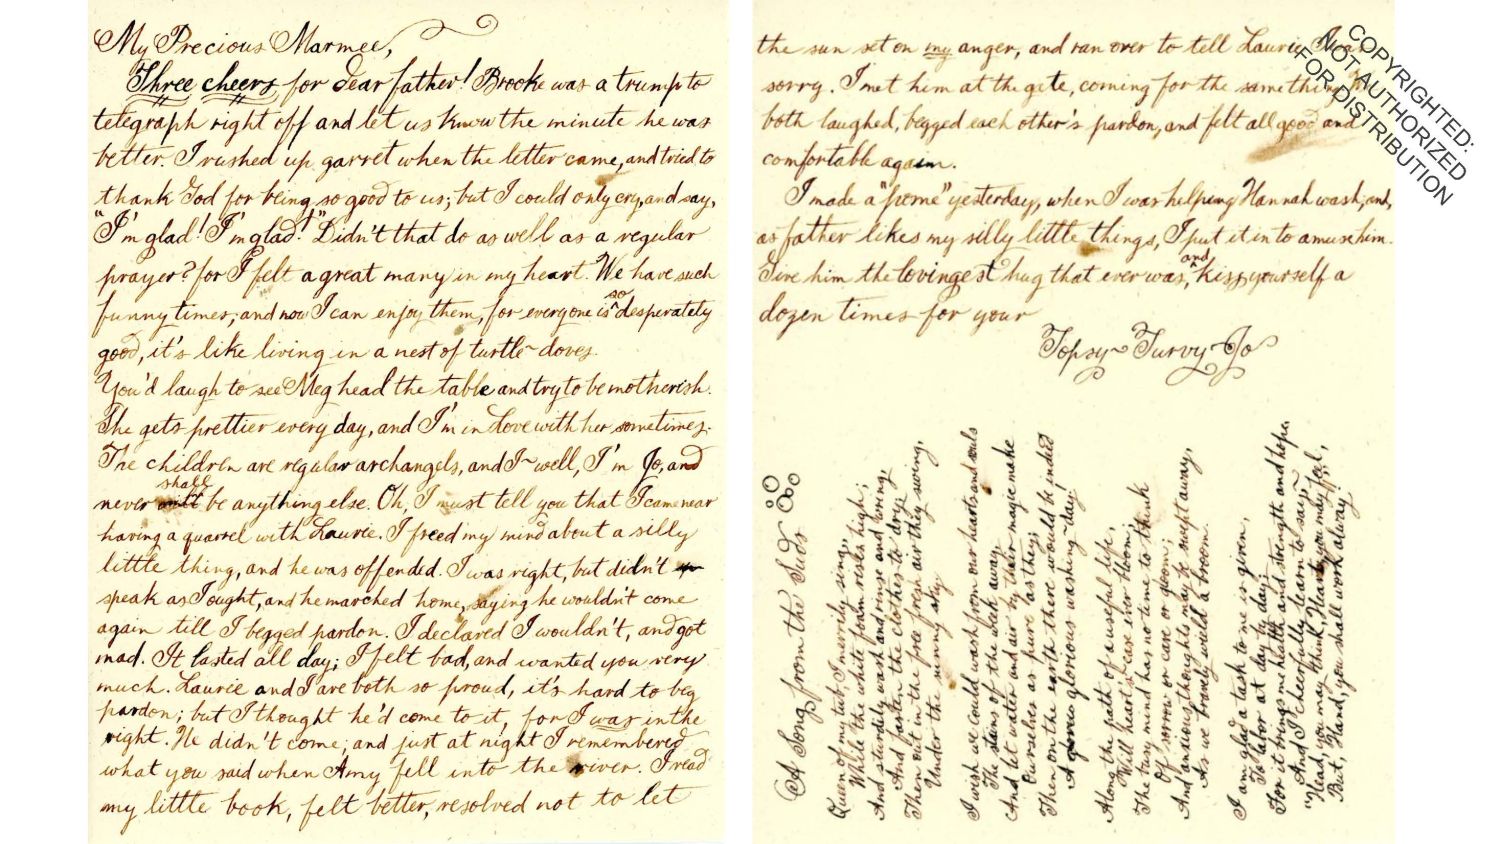 My Precious Marmee,
Three cheers for dear father! Brooke was a trump to
telegraph right off and let us know the minute he was
better. I rushed up garret when the letter came, and tried to
thank God for being so good to us; but I could only cry, and say,
"I'm glad! I'm glad!" Didn't that do as well as a regular
prayer? for I felt a great many in my heart. We have such
funny times; and now I can enjoy them, for everyone is so desperately
good, it's like living in a nest of turtle-doves.
You'd laugh to see Meg head the table and try to be motherish.
She gets prettier every day, and I'm in love with her sometimes.
The children are regular archangels, and I- well, I'm Jo, and
never shall be anything else. Oh, I must tell you that I came near
having a quarrel with Laurie. I freed my mind about a silly
little thing, and he was offended. I was right, but didn't
speak as I ought, and he marched home, saying he wouldn't come
again till I begged pardon. I declared I wouldn't, and got
mad. It lasted all day; I felt bad, and wanted you very
much. Laurie and I are both so proud, it's hard to beg
pardon; but I thought he'd come to it, for I was in the
right. He didn't come; and just at night I remembered
what you said when Amy fell into the river. I read
my little book, felt better, resolved not to let
the sun set on my anger, and ran over to tell Laurie I was
sorry. I met him at the gate, coming for the same thing. We
both laughed, begged each other's pardon, and felt all good and
comfortable again.
I made a "pome" yesterday, when I was helping Hannah wash; and,
as father likes my silly little things, I put it in to amuse him.
Give him the lovingest hug that ever was, and kiss yourself a
dozen times for your
Topsy-Turvy Jo
A Song from the Suds
Queen of my tub, I merrily sing,
While the white foam rises high;
And sturdily wash and rinse and wring,
And fasten the clothes to dry;
Then out in the free fresh air they swing,
Under the sunny sky.
I wish we could wash from our hearts and souls
The stains of the week away,
And let water and air by their magic make
Ourselves as pure as they;
Then on the earth there would be indeed
A glorious washing-day!
Along the path of a useful life,
Will heart's-ease ever bloom;
The busy mind has no time to think
Of sorrow or care or gloom;
And anxious thoughts may be swept away,
As we bravely wield a broom.
I am glad a task to me is given,
To labor at day by day;
For it brings me health and strength and hope,
And I cheerfully learn to say,-
"Head, you may think, Heart, you may feel,
But, Hand, you shall work alway!"
COPYRIGHTED:
NOT AUTHORIZED
FOR DISTRIBUTION